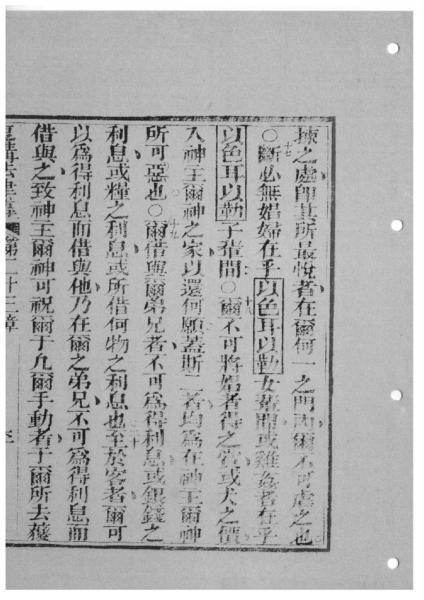 揀之處卽其所最悅者在爾何一之門內爾不可虐之也
十七
○斷必無娼婦在乎以色耳以勒女輩間或雞姦者在乎
以色耳以勒子輩間○爾不可將娼者得之賞或犬之價
十八
入神王爾神之家以還何願蓋斯二者均為在神王爾神
所可惡也○爾借與爾弟兄者不可為得利息或銀錢之
十九
利息或糧之利息或所借何物之利息也至於客者爾可
二十
以為得利息而借與他乃在爾之弟兄不可為得利息而
借與之致神王爾神可祝爾于凡爾手動者于爾所去獲
第二十三章